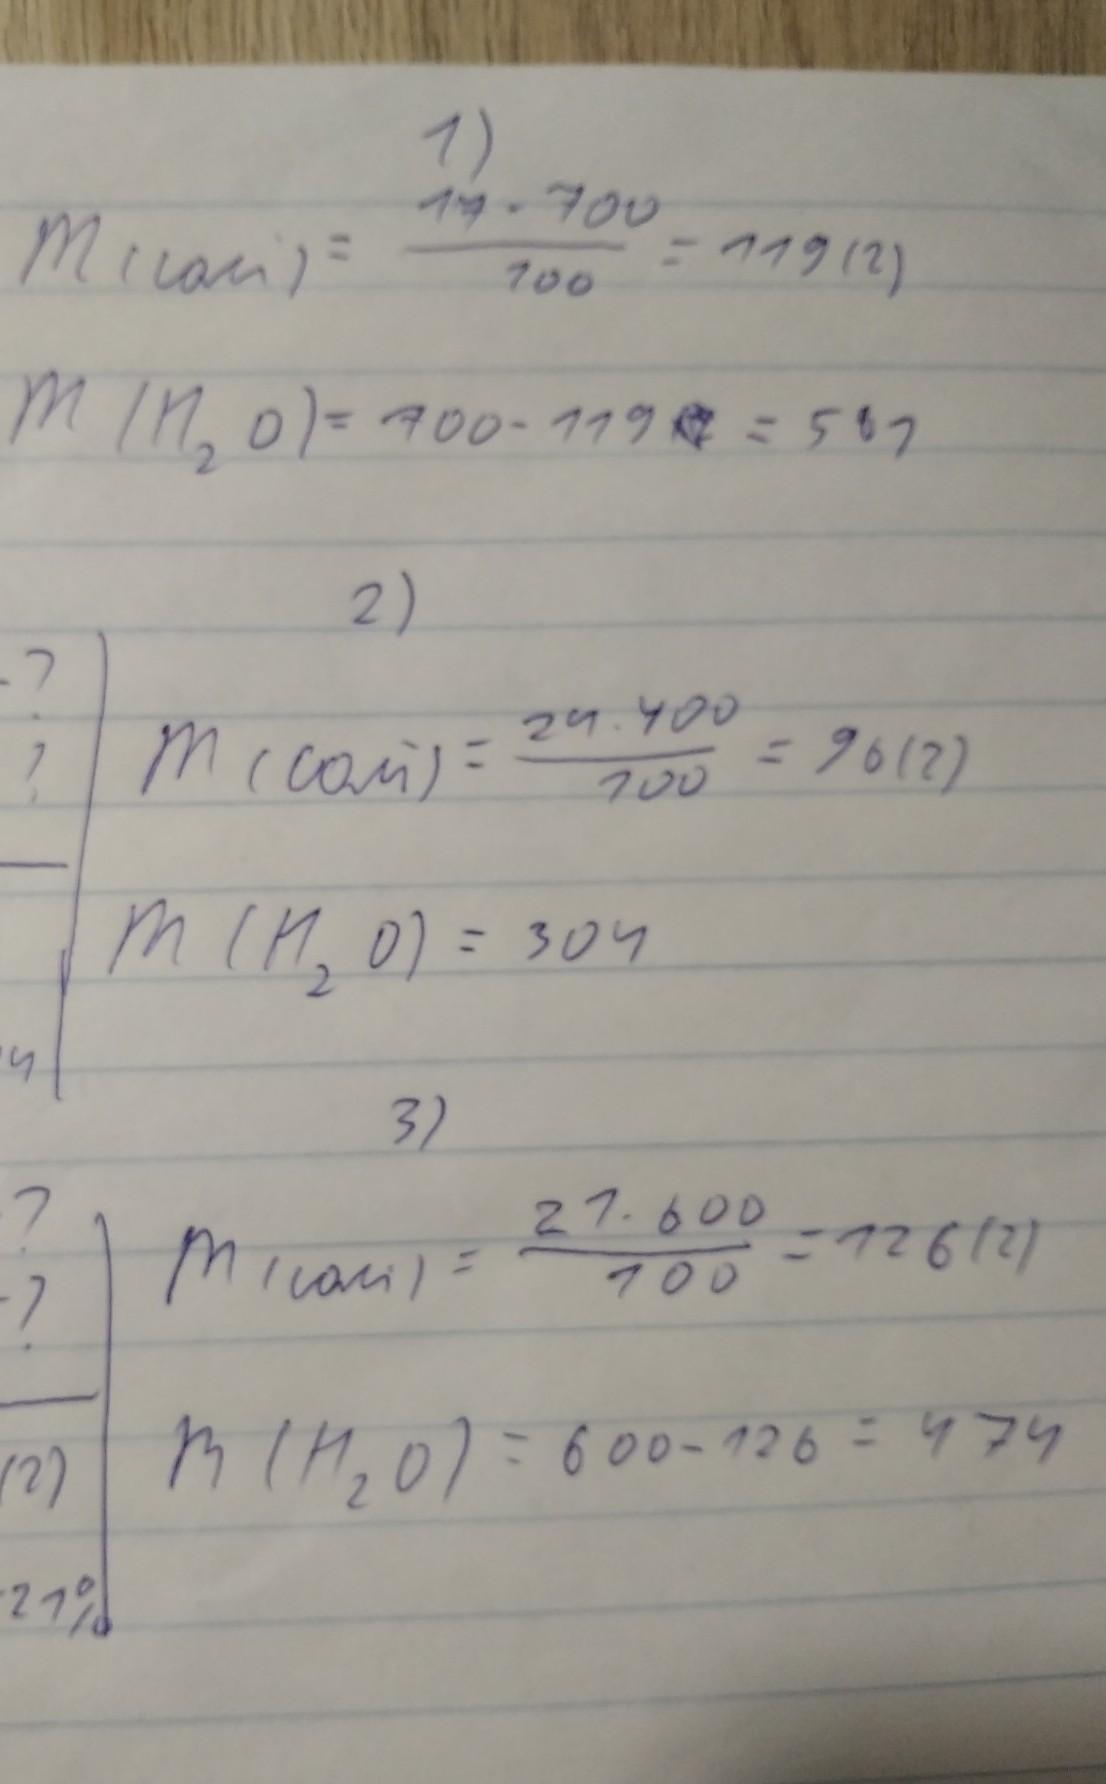 1)
m(солі) = 17 · 700 / 100 = 119(г)
m(H₂O) = 700 - 119 = 581
2)
-?
?
m(солі) = 24 · 400 / 100 = 96(г)
m(H₂O) = 304
4
3)
-?
-?
m(солі) = 21 · 600 / 100 = 126(г)
m(H₂O) = 600 - 126 = 474
(г)
21%